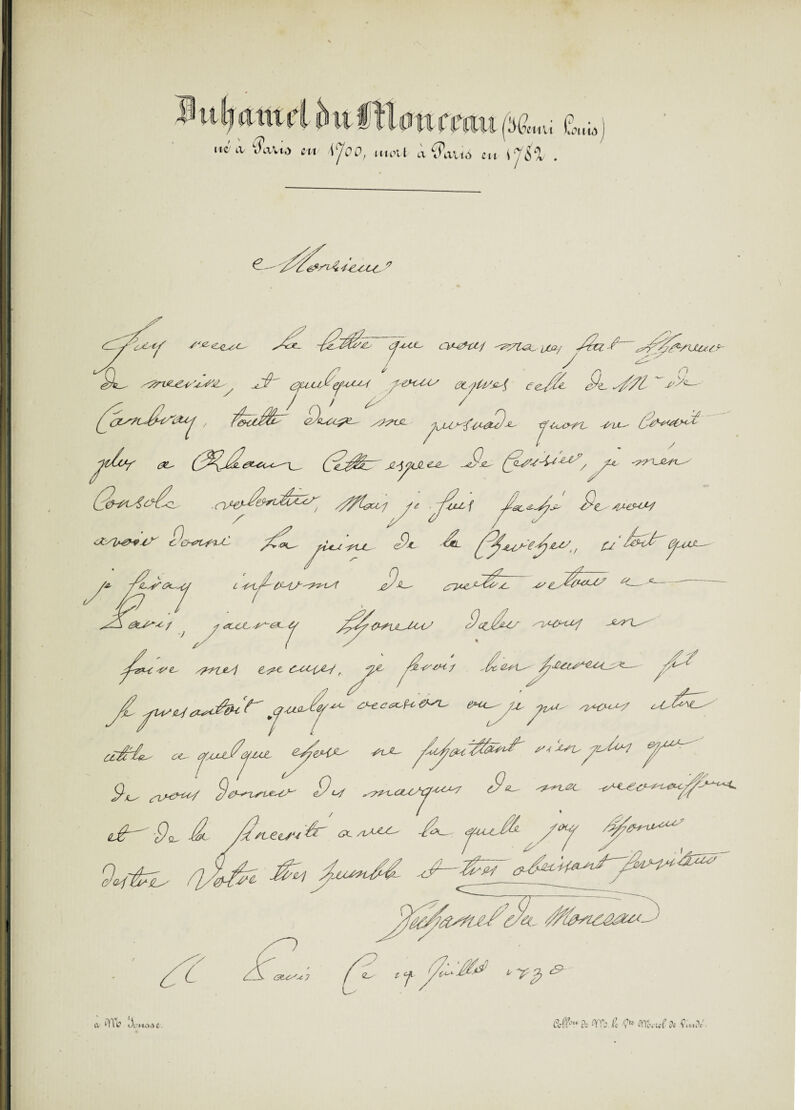 Duhamel du Monceau (Henri Louis)
né à Paris en 1700, mort à Paris en 1782.
Monsieur
Jay receu La lettre que vous maves fait Lhoneur
de mecrire, et quelques jour apres celle de Mr De
Cambray, toutte deux me persuade quon ne Connoit
plus a Orleans Cette espece de Cerisier, je men
Console volontier, Mais je suis faché de vous
avoir donné La peine de la Chercher, sitost que
je seray informé de vostre retour a
Paris, jauray Lhoneur daler vous en
faire mes excuses, je serois bien heureux sil
se presantoit quelqu occasion ou je pu vous estre
utile a quelque chose ne souhaittant rien plus que
de vous donner des marques de ma reconoissance
et de la sincerité avec la quelle jay Lhoneur
destre Votre tres humble et tres obeissant serviteur
Duhamel du Monceau
A Paris Ce 19 Juillet 1730
à Mr
Collon de Mr. le Cte Morel de Vindé.